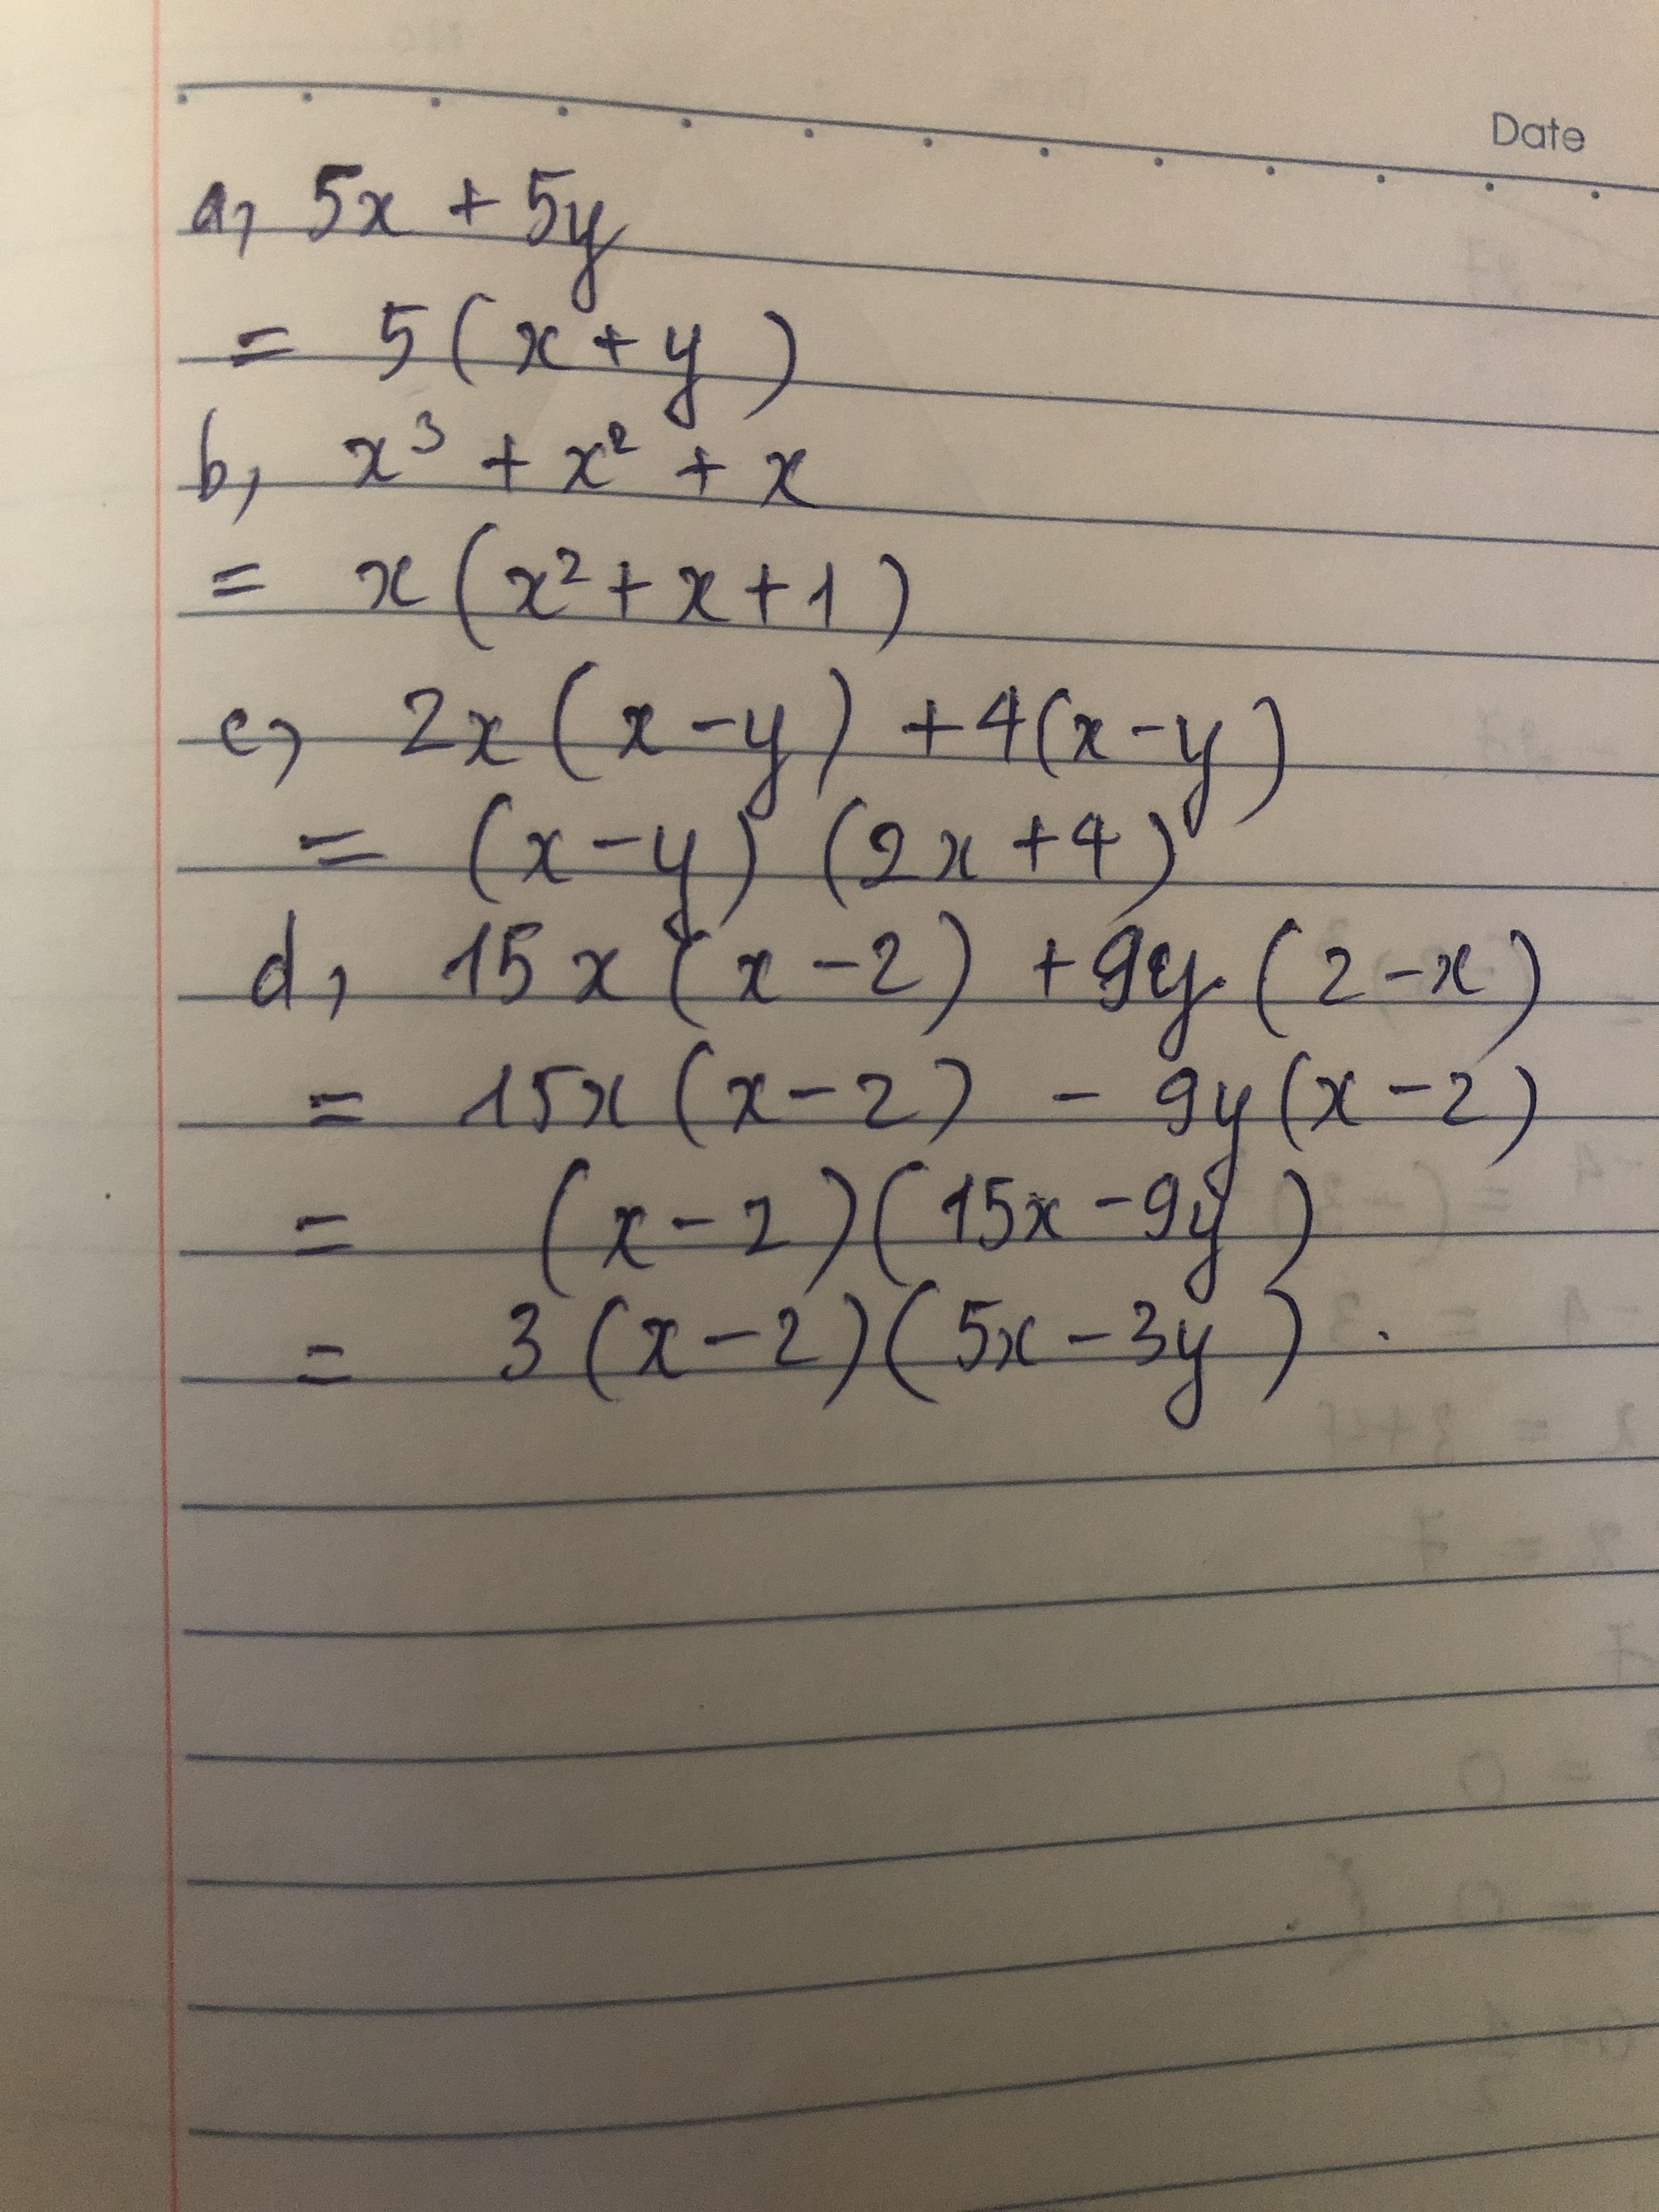 Date
a, 5x + 5y
= 5(x+y)
b, x³ + x² + x
= x(x²+x+1)
c, 2x(x-y) +4(x-y)
= (x-y) (2x+4)
d, 15x(x-2) +9y.(2-x)
= 15x(x-2) - 9y(x-2)
= (x-2)(15x-9y)
= 3(x-2)(5x-3y).